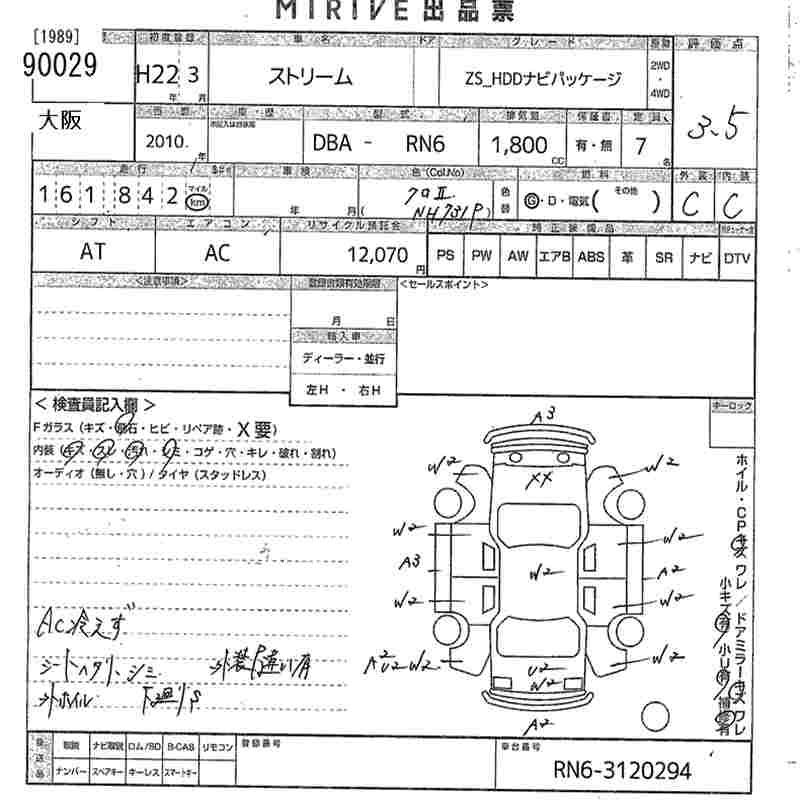 MIRIVE 出品票
[1989]
90029
大阪
初度登録 車名 ドア グレード 原動 評価点
H22 3 年 月
ストリーム
ZS_HDDナビパッケージ
2WD・4WD
3.5
車歴 型式 排気量 保証書 定員
2010. 年
DBA - RN6
1,800 CC
有・無
7 名
走行 車検 色(Col.No) 燃料 外装 内装
161842 マイル km
年 月
クロⅡ
(NH731P)
色替
G・D・電気( その他 )
C C
シフト エアコン リサイクル預託金 純正装備品
AT AC 12,070 円
PS PW AW エアB ABS 革 SR ナビ DTV
<注意事項> 登録書類有効期限 <セールスポイント>
月 日
輸入車
ディーラー・並行
左H ・ 右H
< 検査員記入欄 >
キーロック
Fガラス (キズ・飛石・ヒビ・リペア跡・X要)
内装 (キズ・スレ・汚れ・シミ・コゲ・穴・キレ・破れ・割れ)
オーディオ (無し・穴) / タイヤ (スタッドレス)
A3
XX
W2 W2
W2 W2
A3 A2
W2
W2 W2
A2 U2 W2 W2
U2
W2
A2
ホイル・CPキズ ワレ / ドアミラーキズ ワレ
小キズ有 小リ有 補修有
AC冷えず
シートヘタリ、シミ
外ホイル 下廻りS
発送品
取説 ナビ取説 ロム/SD B-CAS リモコン
ナンバー スペアキー キーレス スマートキー
登録番号
車台番号
RN6-3120294